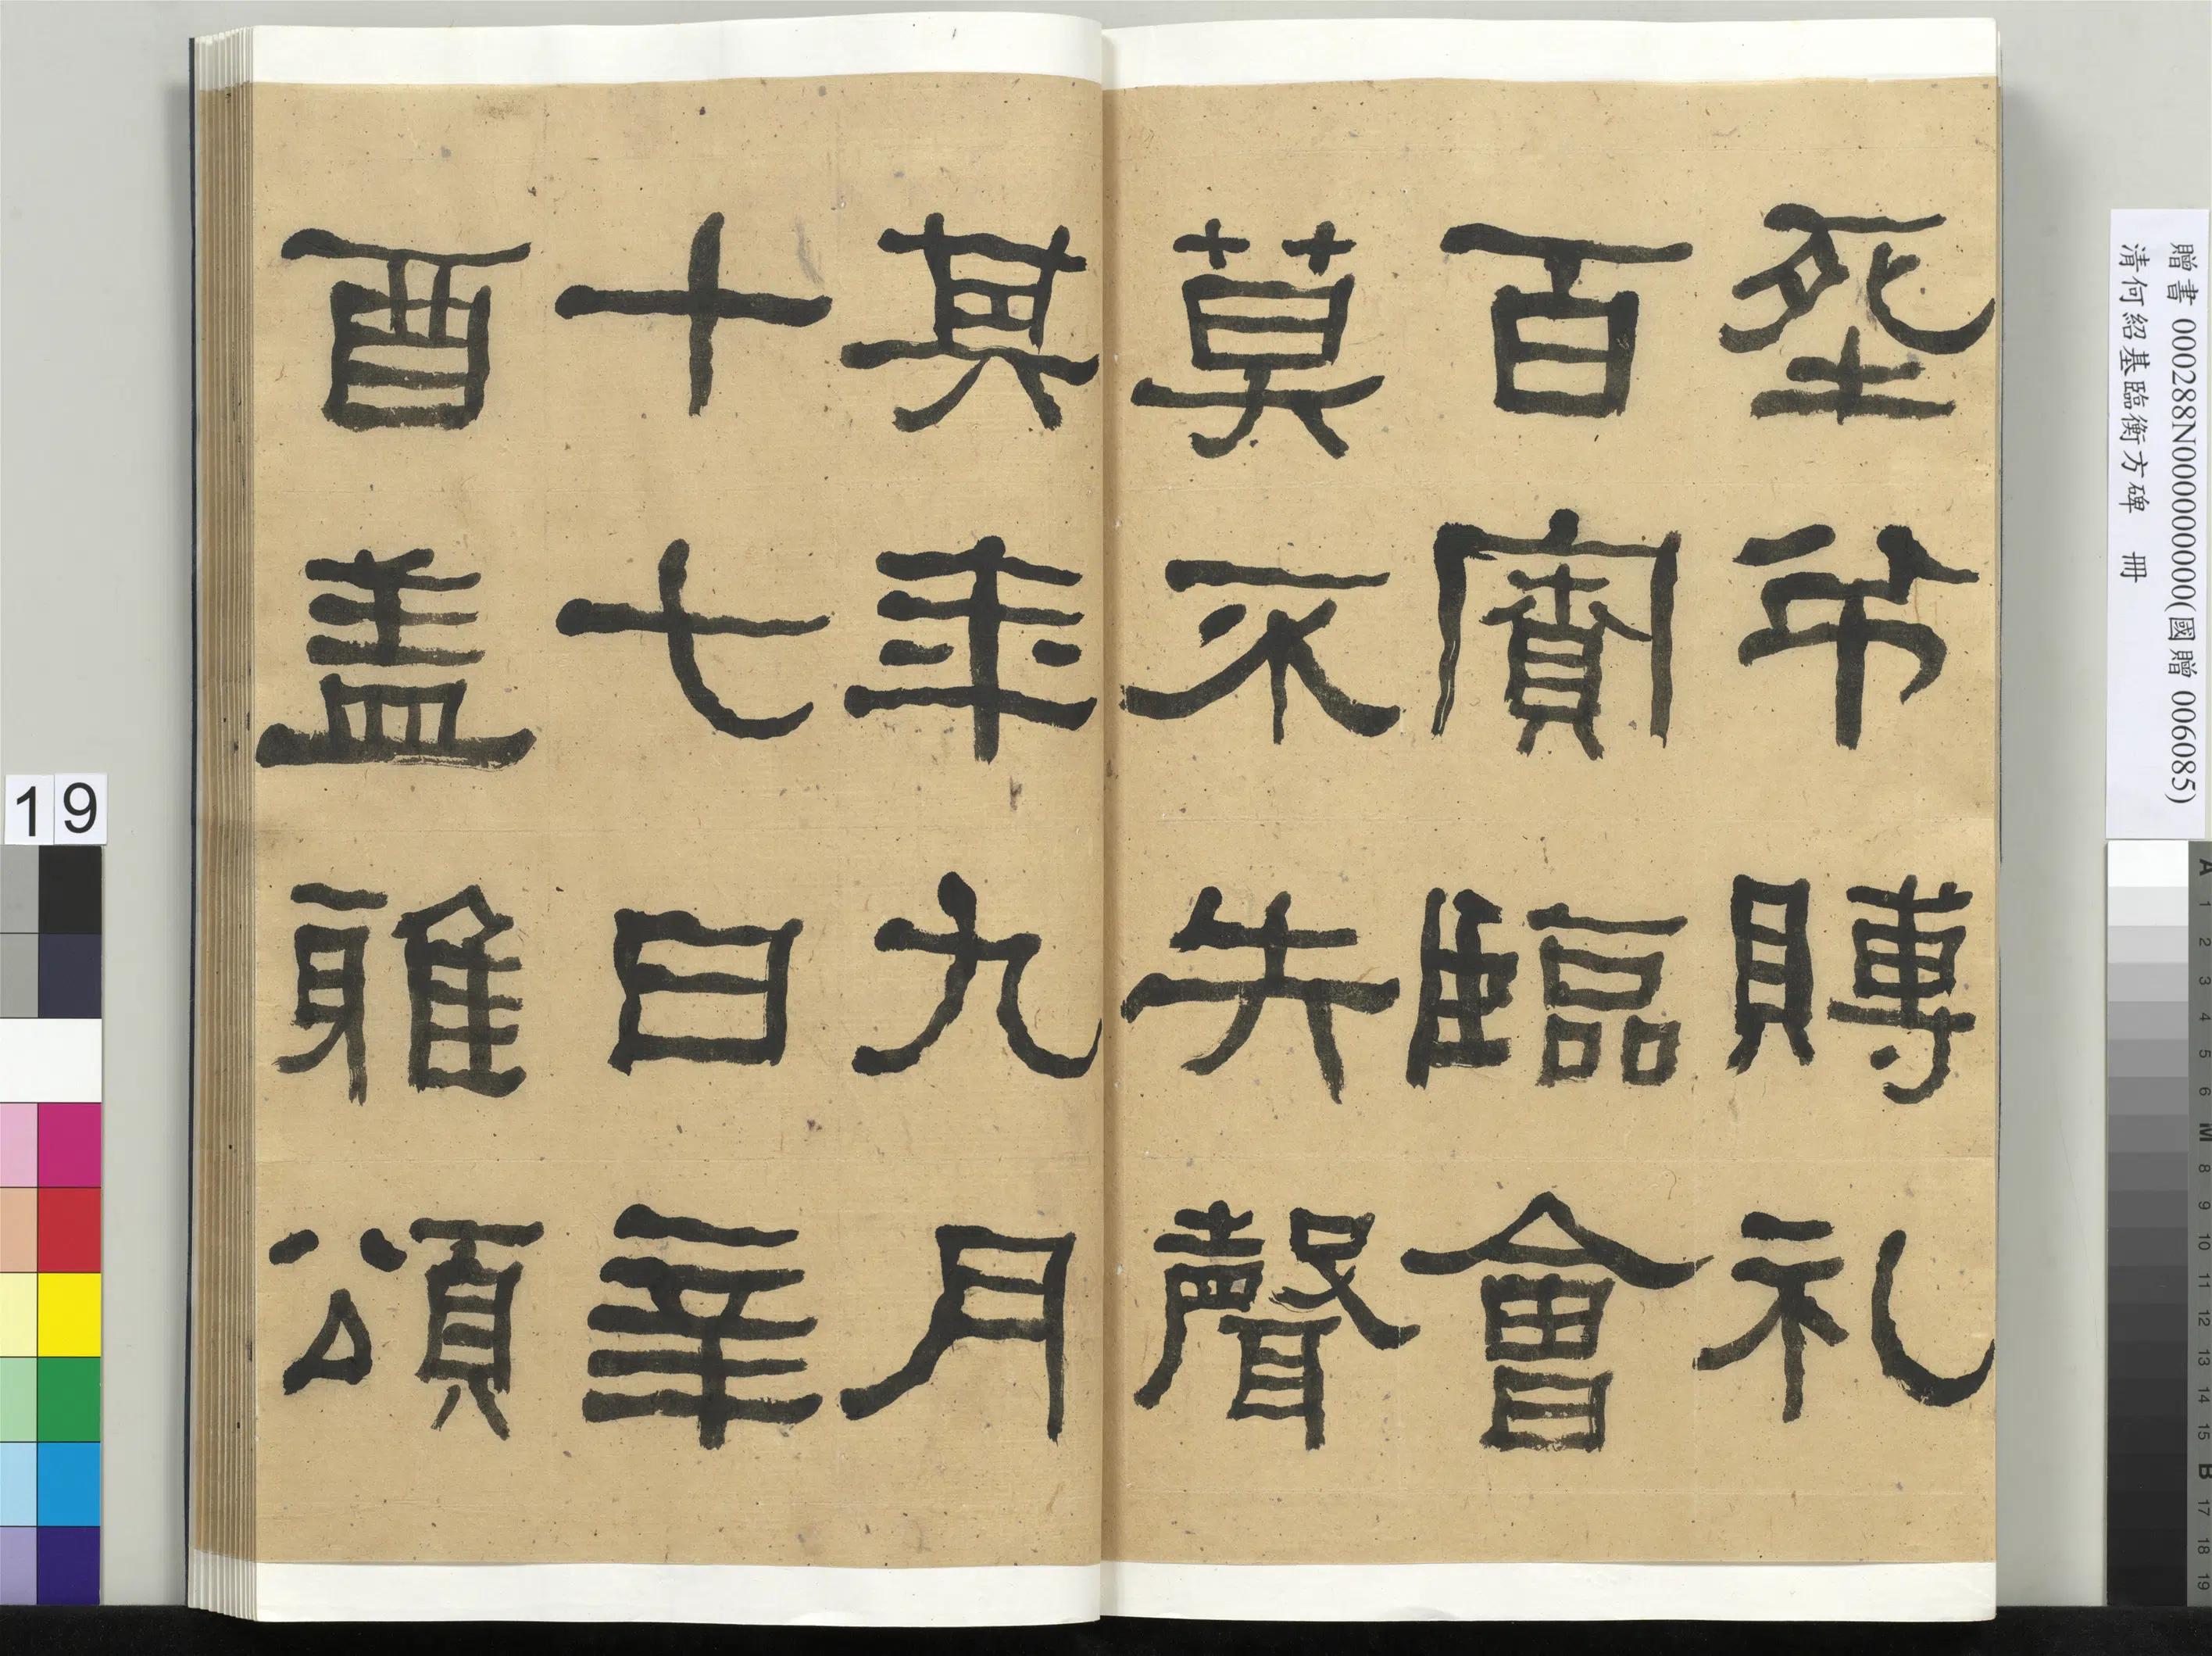 弔賻礼
百寮臨會
莫不失聲
其年九月
十七日辛
酉盖雅頌
贈書 000288N000000000(國贈 006085)
清何紹基臨衡方碑 冊
19
A 1 2 3 4 5 6 M 8 9 10 11 12 13 14 15 B 17 18 19